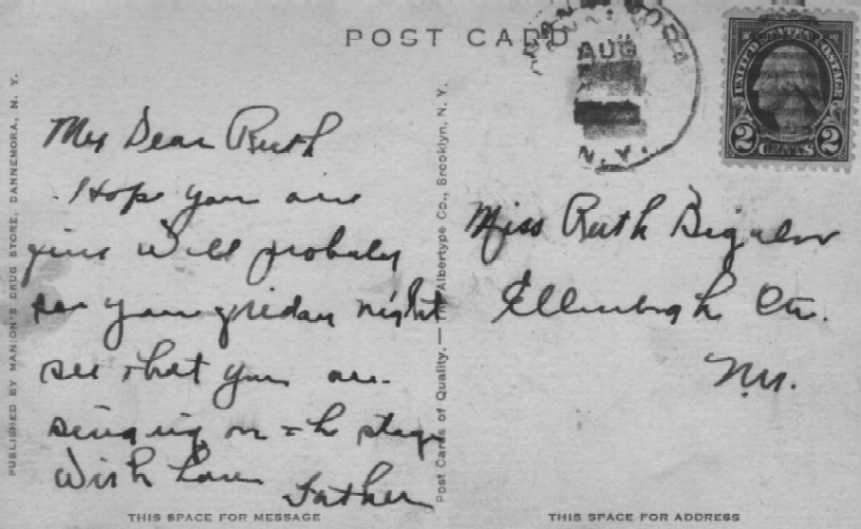 POST CARD
AUG
N.Y.
UNITED STATES POSTAGE
2 CENTS 2
PUBLISHED BY MANION'S DRUG STORE, DANNEMORA, N. Y.
My Dear Ruth
Hope you are
fine Will probaly
see you friday night
see that you are
singing on the stage
With Love
Father
THIS SPACE FOR MESSAGE
Post Cards of Quality. — The Albertype Co., Brooklyn, N. Y.
Miss Ruth Bigelow
Ellenburgh Ctr.
N.Y.
THIS SPACE FOR ADDRESS